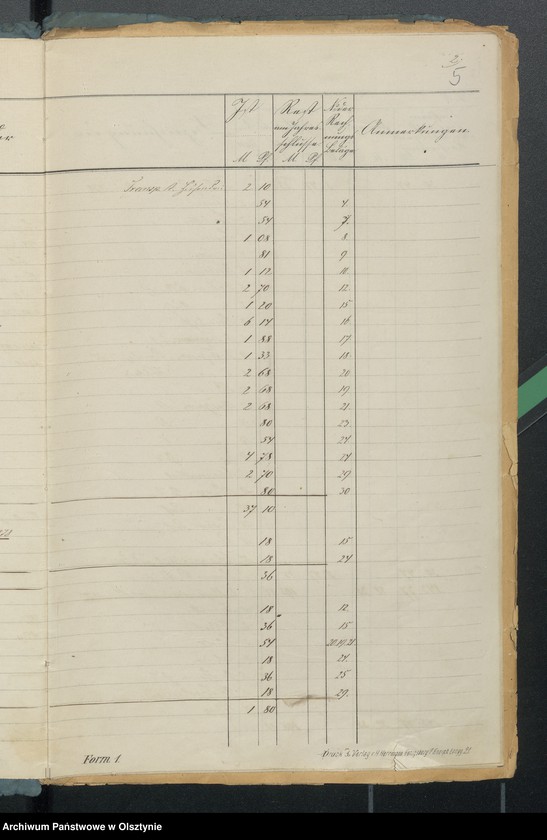 2/5
Ist
Rest am Jahresschlusse
Rechnungs Belage
Anmerkungen
M Pf M Pf
Transp. 2 10
54 4.
54 7.
1 08 8.
81 9.
1 12 11.
2 70 12.
1 20 15.
6 14 16.
1 88 17.
1 33 18.
2 68 20.
2 68 19.
2 68 21.
80 23.
54 24
4 78 14
2 70 29
80 30
37 10
18 15.
18 24
36
18 12.
36 15
54 20.19.21.
18 24.
36 25
18 29.
1 80
Form 1.
Druck u. Verlag
Archiwum Państwowe w Olsztynie